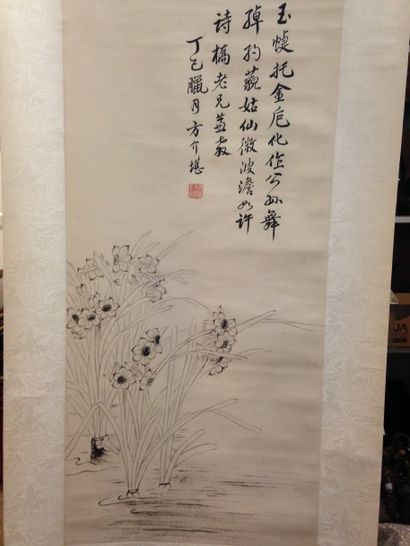 玉盤托金卮化作公孫舞
綽約藐姑仙微波澹如許
詩橋老兄茘叔
丁巳臘月方介堪
JA